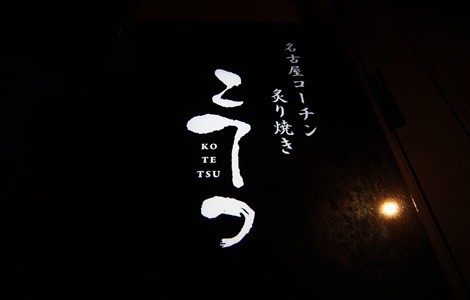 名古屋コーチン
炙り焼き
こてつ
KO
TE
TSU